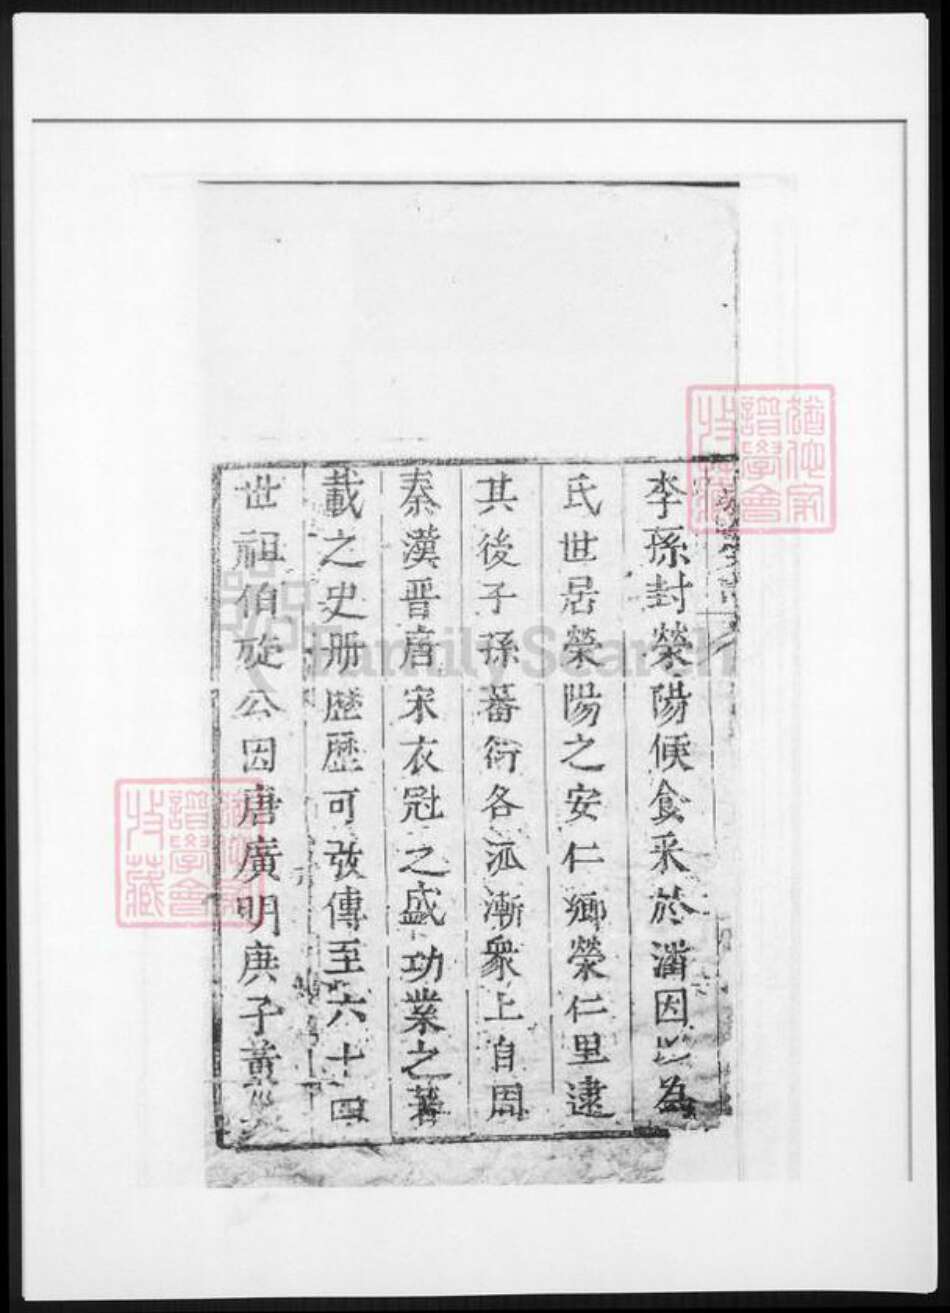 李孫封滎陽候食采於潘因以為
氏世居榮陽之安仁鄉榮仁里逮
其後子孫蕃衍各派漸衆上自周
秦漢晋唐宋衣冠之盛功業之著
載之史册歴歴可攷傳至六十四
世祖伯旋公因唐廣明庚子黃巢
譜學會
收藏
FamilySearch
譜學會
收藏